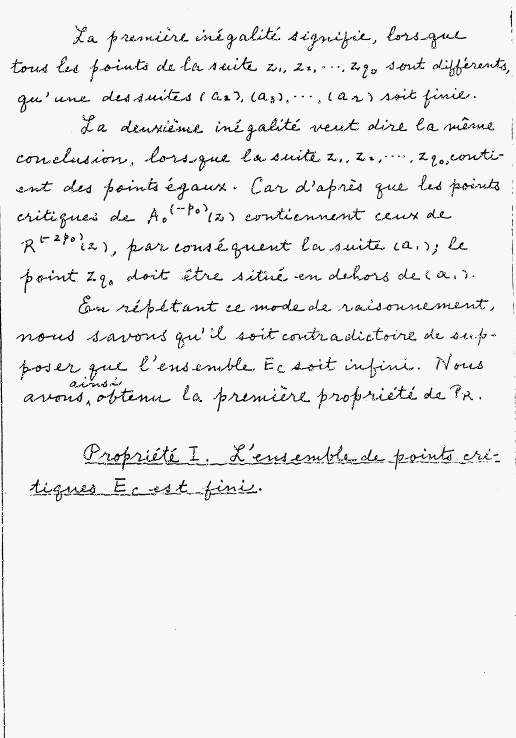 La première inégalité signifie, lorsque
tous les points de la suite z₁, z₂, ..., z_{q₀} sont différents,
qu'une des suites (a₂), (a₃), ..., (aₙ) soit finie.
La deuxième inégalité veut dire la même
conclusion, lorsque la suite z₁, z₂, ..., z_{q₀}, conti-
ent des points égaux. Car d'après que les points
critiques de A₀^{(-p₀)}(z) contiennent ceux de
R^{(-2p₀)}(z), par conséquent la suite (a₁); le
point z_{q₀} doit être situé en dehors de (a₁).
En répétant ce mode de raisonnement,
nous savons qu'il soit contradictoire de sup-
poser que l'ensemble Ec soit infini. Nous
avons ainsi obtenu la première propriété de P_R.
Propriété I. L'ensemble de points cri-
tiques Ec est fini.